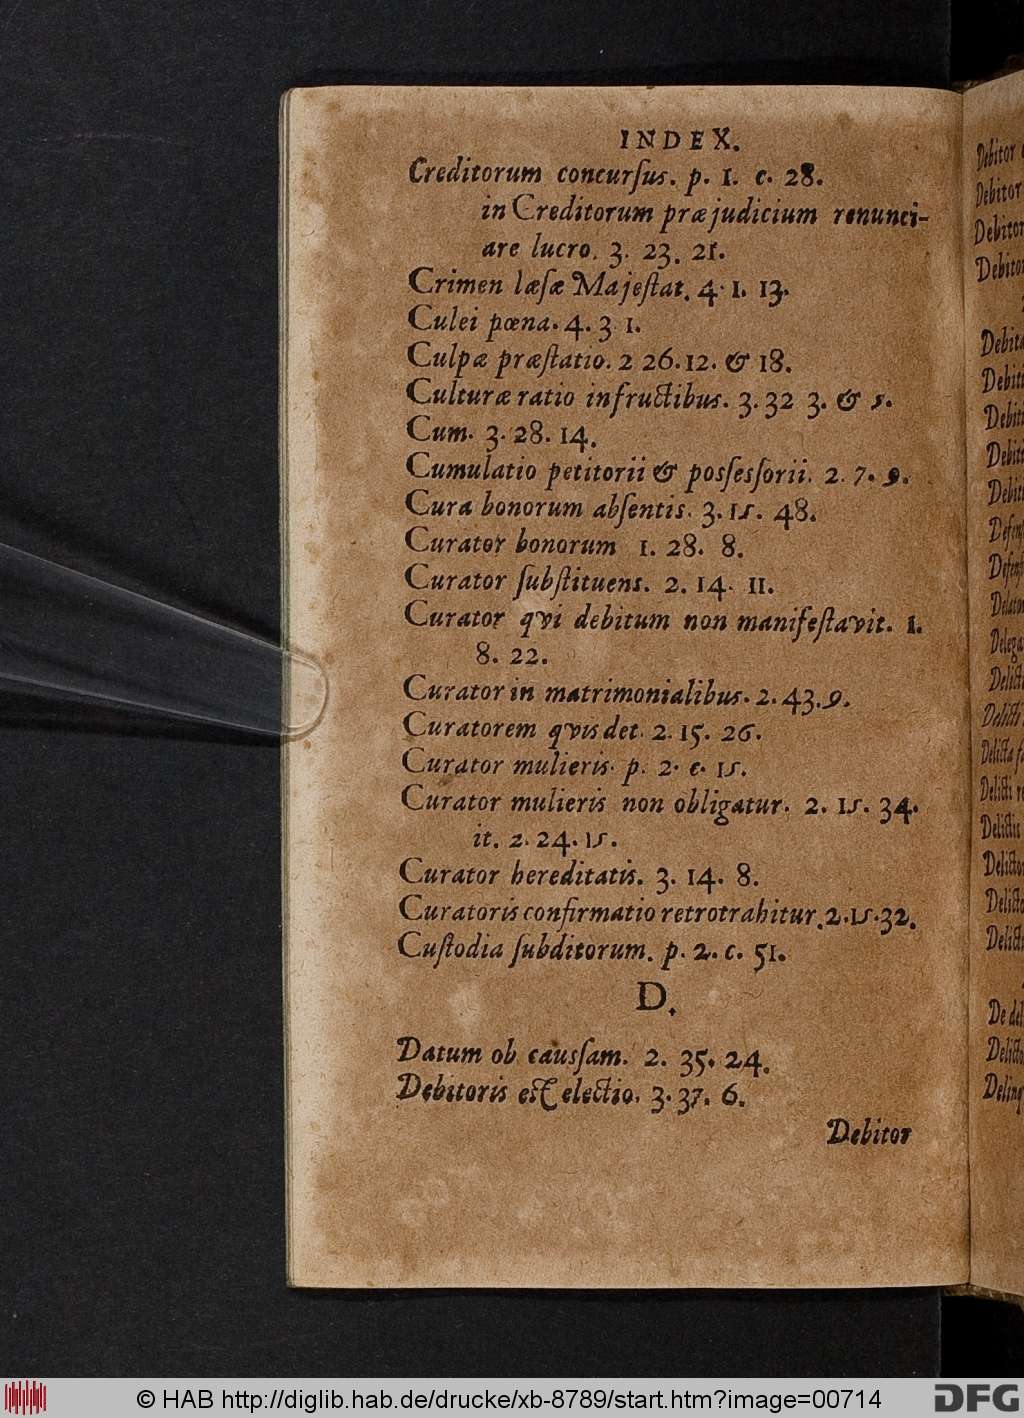 INDEX.
Creditorum concurſus. p. 1. c. 28.
in Creditorum præjudicium renunci-
are lucro. 3. 23. 21.
Crimen læſæ Majeſtat. 4. 1. 13.
Culei pœna. 4. 3 1.
Culpæ præſtatio. 2 26. 12. & 18.
Culturæ ratio infructibus. 3. 32 3. & 5.
Cum. 3. 28. 14.
Cumulatio petitorii & posſesſorii. 2. 7. 9.
Cura bonorum abſentis. 3. 15. 48.
Curator bonorum 1. 28. 8.
Curator ſubſtituens. 2. 14. 11.
Curator qvi debitum non manifeſtavit. 1.
8. 22.
Curator in matrimonialibus. 2. 43. 9.
Curatorem qvis det. 2. 15. 26.
Curator mulieris. p. 2. c. 15.
Curator mulieris non obligatur. 2. 15. 34.
it. 2. 24. 15.
Curator hereditatis. 3. 14. 8.
Curatoris confirmatio retrotrahitur. 2. 15. 32.
Cuſtodia ſubditorum. p. 2. c. 51.
D.
Datum ob causſam. 2. 35. 24.
Debitoris eſt electio. 3. 37. 6.
Debitor
Debitor
Debitor
Debitor
Debitor
De
© HAB http://diglib.hab.de/drucke/xb-8789/start.htm?image=00714
DFG